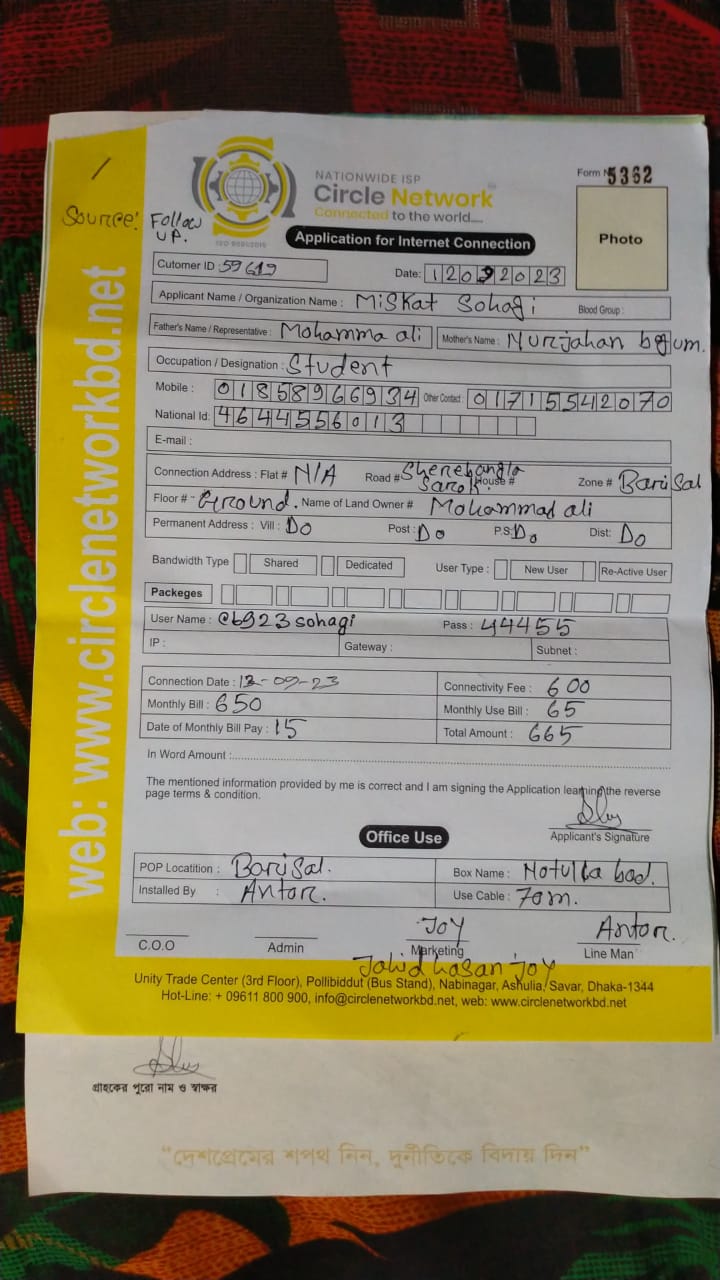 NATIONWIDE ISP
Circle Network
Connected to the world.....
ISO 9001:2015
Form N 5362
Source: Follow UP.
Photo
Application for Internet Connection
Cutomer ID 59619
Date: 12092023
Applicant Name / Organization Name : Miskat Sohagi Blood Group :
Father's Name / Representative : Mohamma ali Mother's Name : Nurjahan begum.
Occupation / Designation : Student
Mobile : 01858966934 Other Contact : 01715542070
National Id: 4644556013
E-mail :
Connection Address : Flat # N/A Road # Sherebangla Sarok House # Zone # Barisal
Floor # - Ground. Name of Land Owner # Mohammad ali
Permanent Address : Vill : Do Post : Do P.S: Do Dist: Do
Bandwidth Type Shared Dedicated User Type : New User Re-Active User
Packeges
User Name : cb923sohagi Pass : 44455
IP : Gateway : Subnet :
Connection Date : 12-09-23 Connectivity Fee : 600
Monthly Bill : 650 Monthly Use Bill : 65
Date of Monthly Bill Pay : 15 Total Amount : 665
In Word Amount :
The mentioned information provided by me is correct and I am signing the Application learning the reverse
page terms & condition.
Applicant's Signature
Office Use
POP Locatition : Barisal. Box Name : Notulla bad.
Installed By : Antor. Use Cable : 70m.
Joy Antor.
C.O.O Admin Marketing Line Man
Jahid hasan joy
Unity Trade Center (3rd Floor), Pollibiddut (Bus Stand), Nabinagar, Ashulia, Savar, Dhaka-1344
Hot-Line: + 09611 800 900, info@circlenetworkbd.net, web: www.circlenetworkbd.net
web: www.circlenetworkbd.net
গ্রাহকের পুরো নাম ও স্বাক্ষর
“দেশপ্রেমের শপথ নিন, দুর্নীতিকে বিদায় দিন”